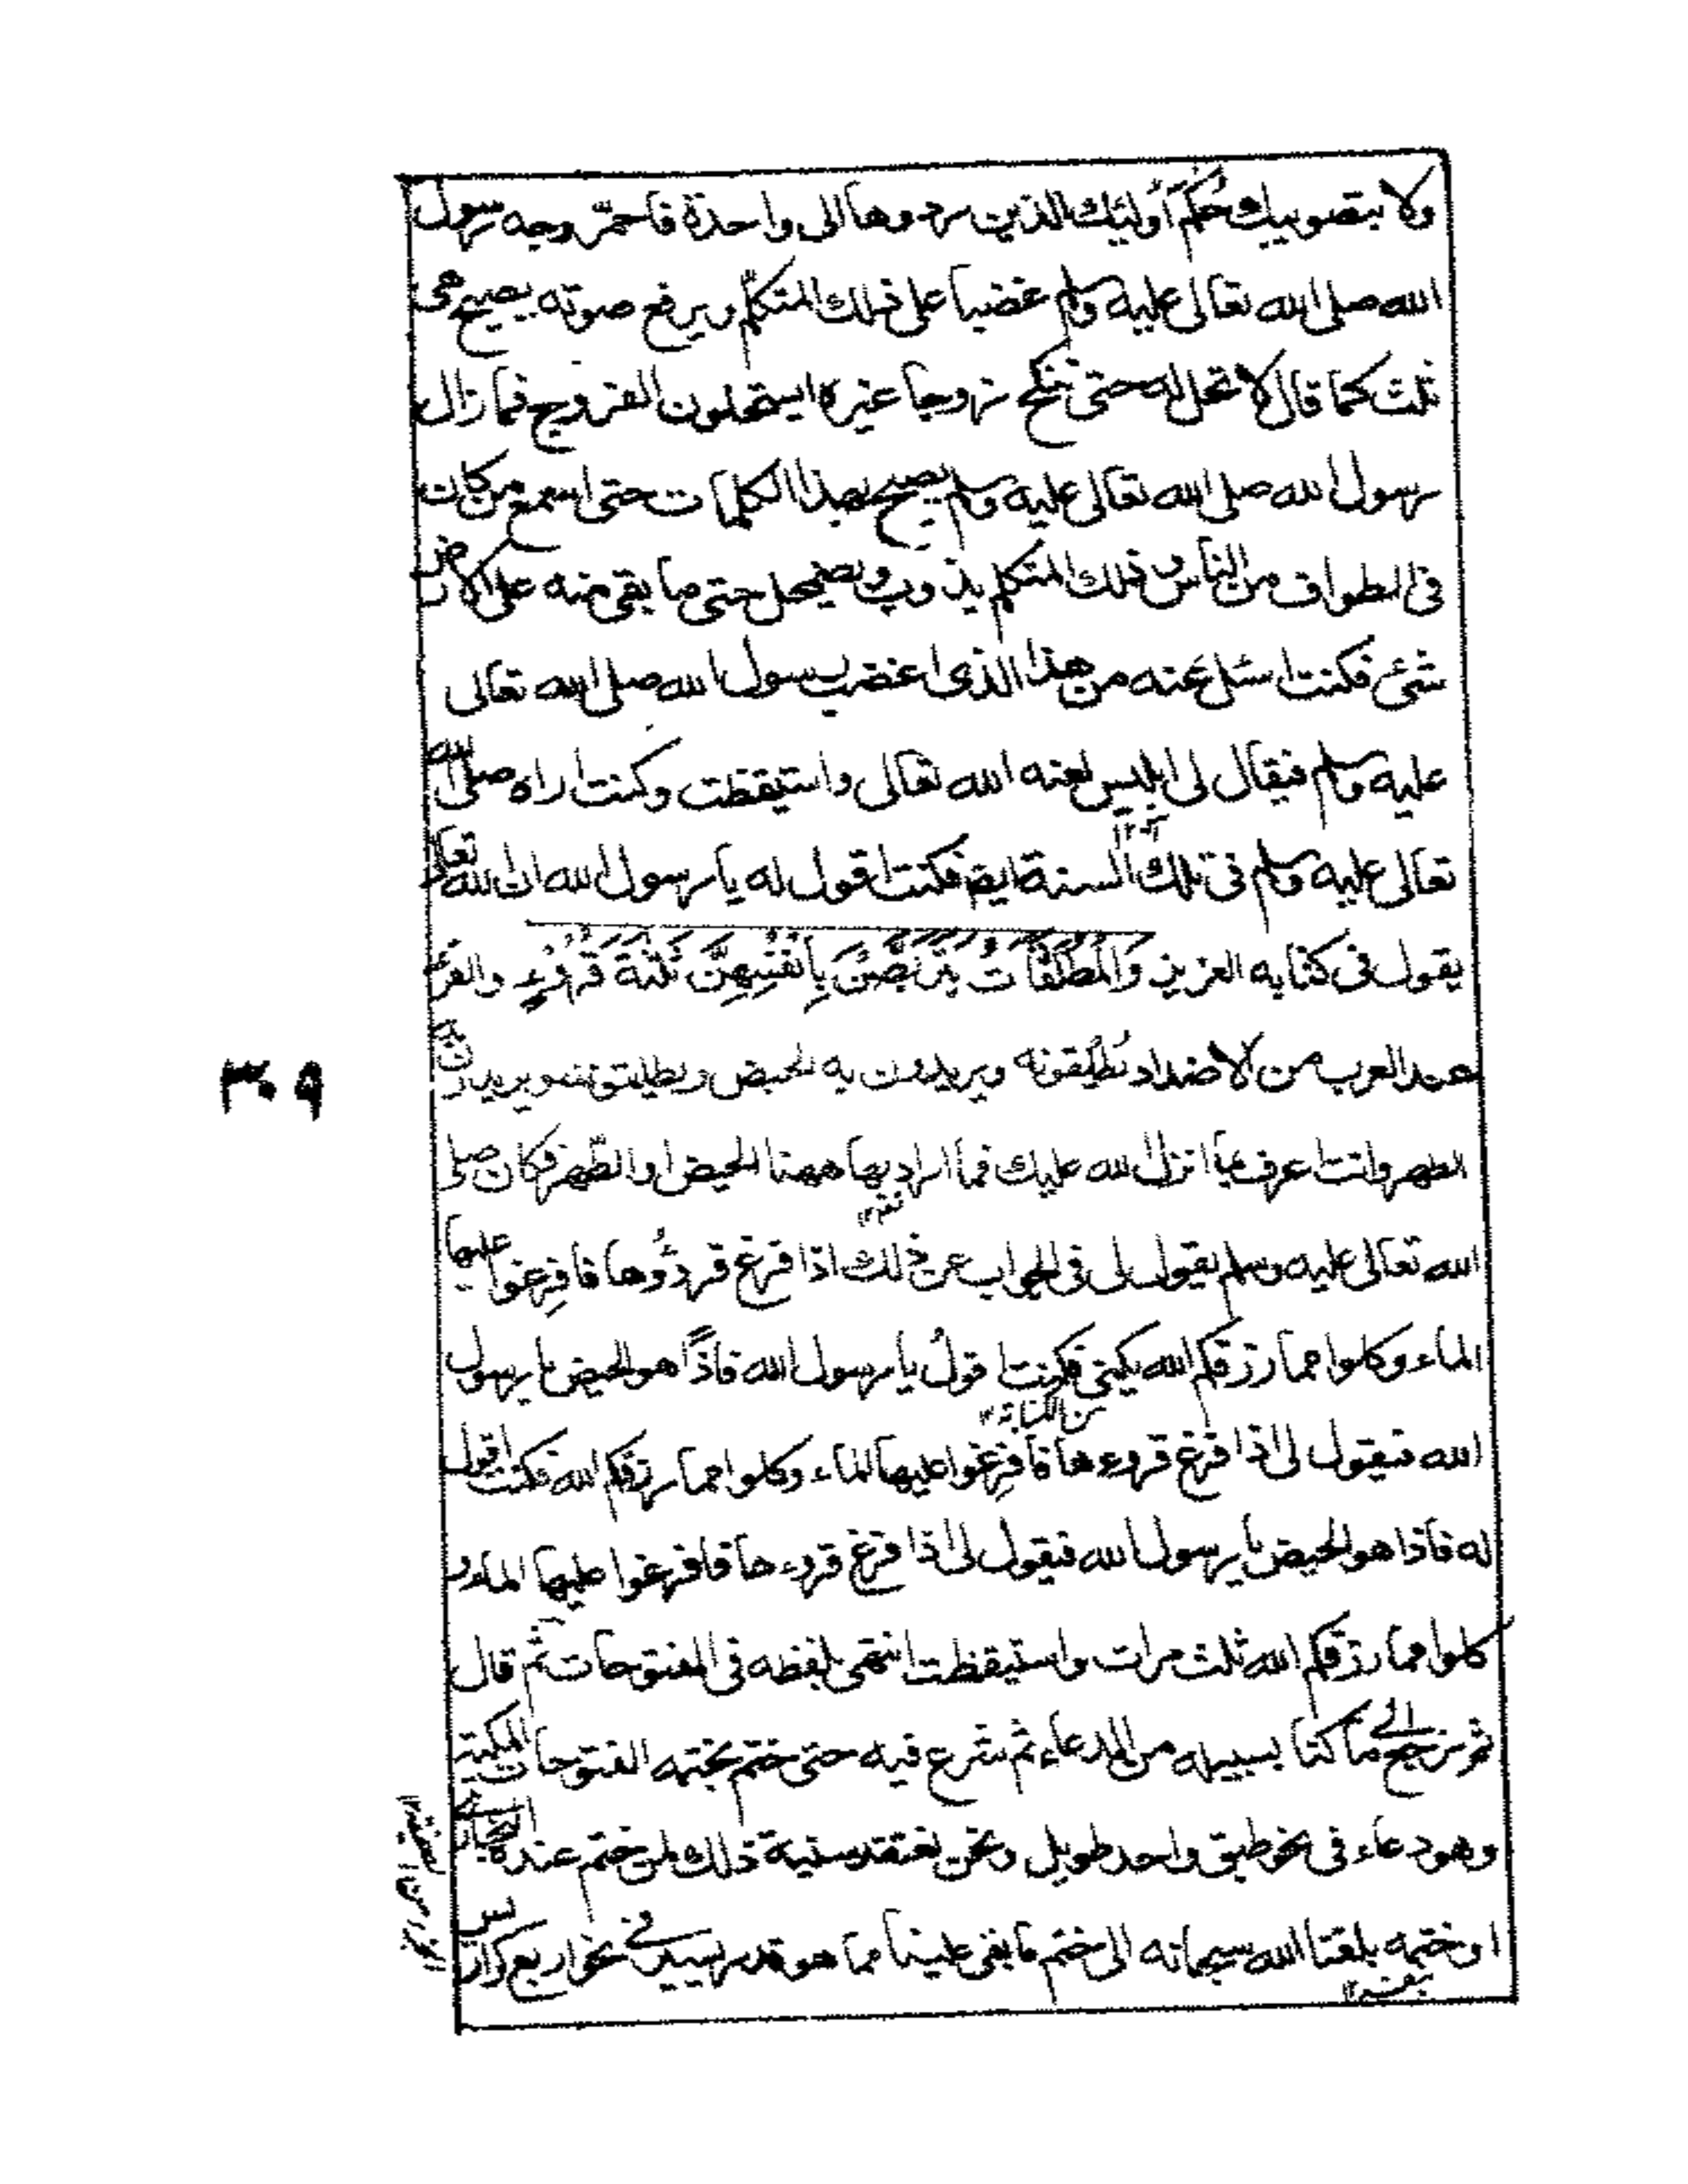 ولا بتصويبك حُكمَ أولئك الذين ردوها الى واحدة فاحمرّ وجه رسول
الله صلى الله تعالى عليه وسلم غضبا على ذلك المتكلّم ويرفع صوته يصيح هى
ثلث كما قال لا تحل له حتى تنكح زوجا غيره ايستحلون الفروج فما زال
رسول الله صلى الله تعالى عليه وسلم يصيح بهذا الكلمات حتى اسمع من كان
فى الطواف من الناس وذلك المتكلم يذوب ويضمحل حتى ما بقى منه على الارض
شئ فكنت اسئل عنه من هذا الذى اغضب رسول الله صلى الله تعالى
عليه وسلم فيقال لى ابليس لعنه الله تعالى واستيقظت وكنت اراه صلى الله
تعالى عليه وسلم فى تلك السنة ايضا فكنت اقول له يا رسول الله ان الله تعالى
يقول فى كتابه العزيز وَالْمُطَلَّقَاتُ يَتَرَبَّصْنَ بِأَنْفُسِهِنَّ ثَلٰثَةَ قُرُوْءٍ والقرء
عند العرب من الاضداد تُطلِقونه ويريدون به الحيض وتطلقونه ويريدون به
الطهر وانت اعرف بما انزل الله عليك فما اراد بها ههنا الحيض او الطّهر فكان صلى
الله تعالى عليه وسلم يقول لى فى الجواب عن ذلك اذا فرغ قرؤُها فافرِغوا عليها
الماء وكلوا مما رزقكم الله يكنى فكنت اقولُ يا رسول الله فاذًا هو الحيض يا رسول
من الكناية ١٢
الله فيقول لى اذا فرغ قروءها فافرِغوا عليها الماء وكلوا مما رزقكم الله فكنت اقول
له فاذا هو الحيض يا رسول الله فيقول لى اذا فرغ قروءها فافرغوا عليها الماء و
كلوا مما رزقكم الله ثلث مرات واستيقظت انتهى بلفظه فى الفتوحات ثم قال
ثم نرجع الى ما كنا بسبيله من الدعاء ثم شرع فيه حتى ختم بختمه الفتوحات المكية
وهو دعاء فى نحو طبق واحد طويل ونحن نعتقد سنية ذلك لمن ختم عنده
او ختمه بلغنا الله سبحانه الى ختم ما بقى علينا مما هو قدر يسير فى نحو اربع كراريس
٣٠٩